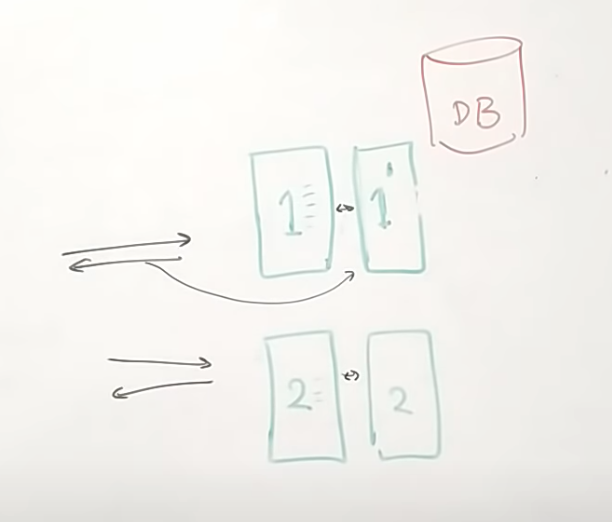 DB
1 1'
2 2